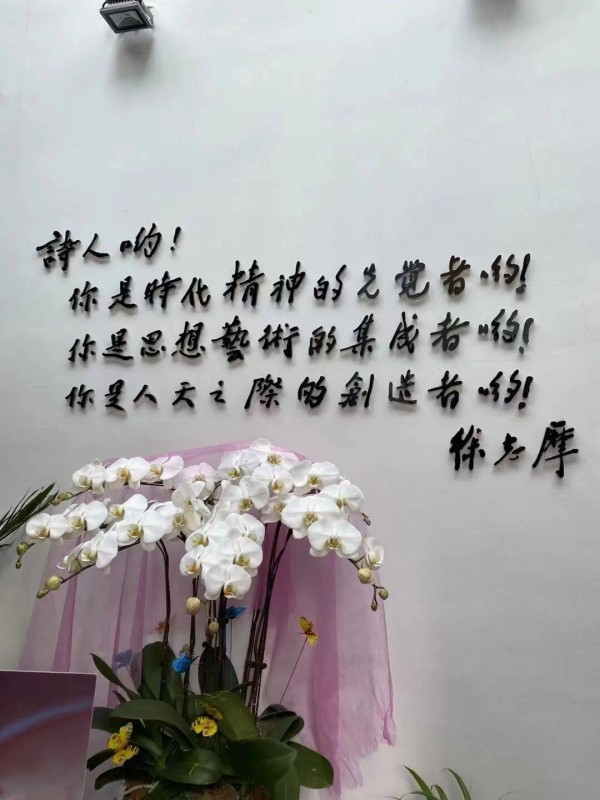 詩人喲！
你是時代精神的先覺者喲！
你是思想藝術的集成者喲！
你是人天之際的創造者喲！
徐志摩